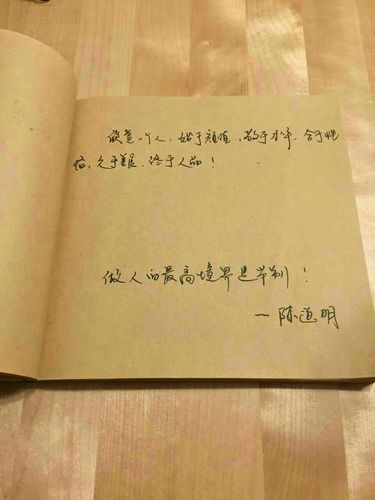 一个人，始于颜值、敬于才华、合于性
格，久于善良、终于人品！
做人的最高境界是节制！
—陈道明